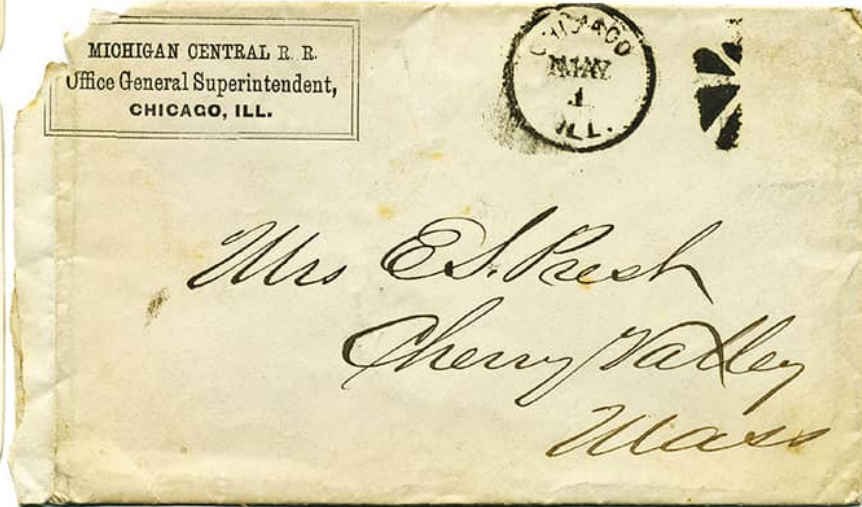 MICHIGAN CENTRAL R. R.
Office General Superintendent,
CHICAGO, ILL.
CHICAGO
MAY
1
ILL.
Mrs E. S. Prest
Cherry Valley
Mass